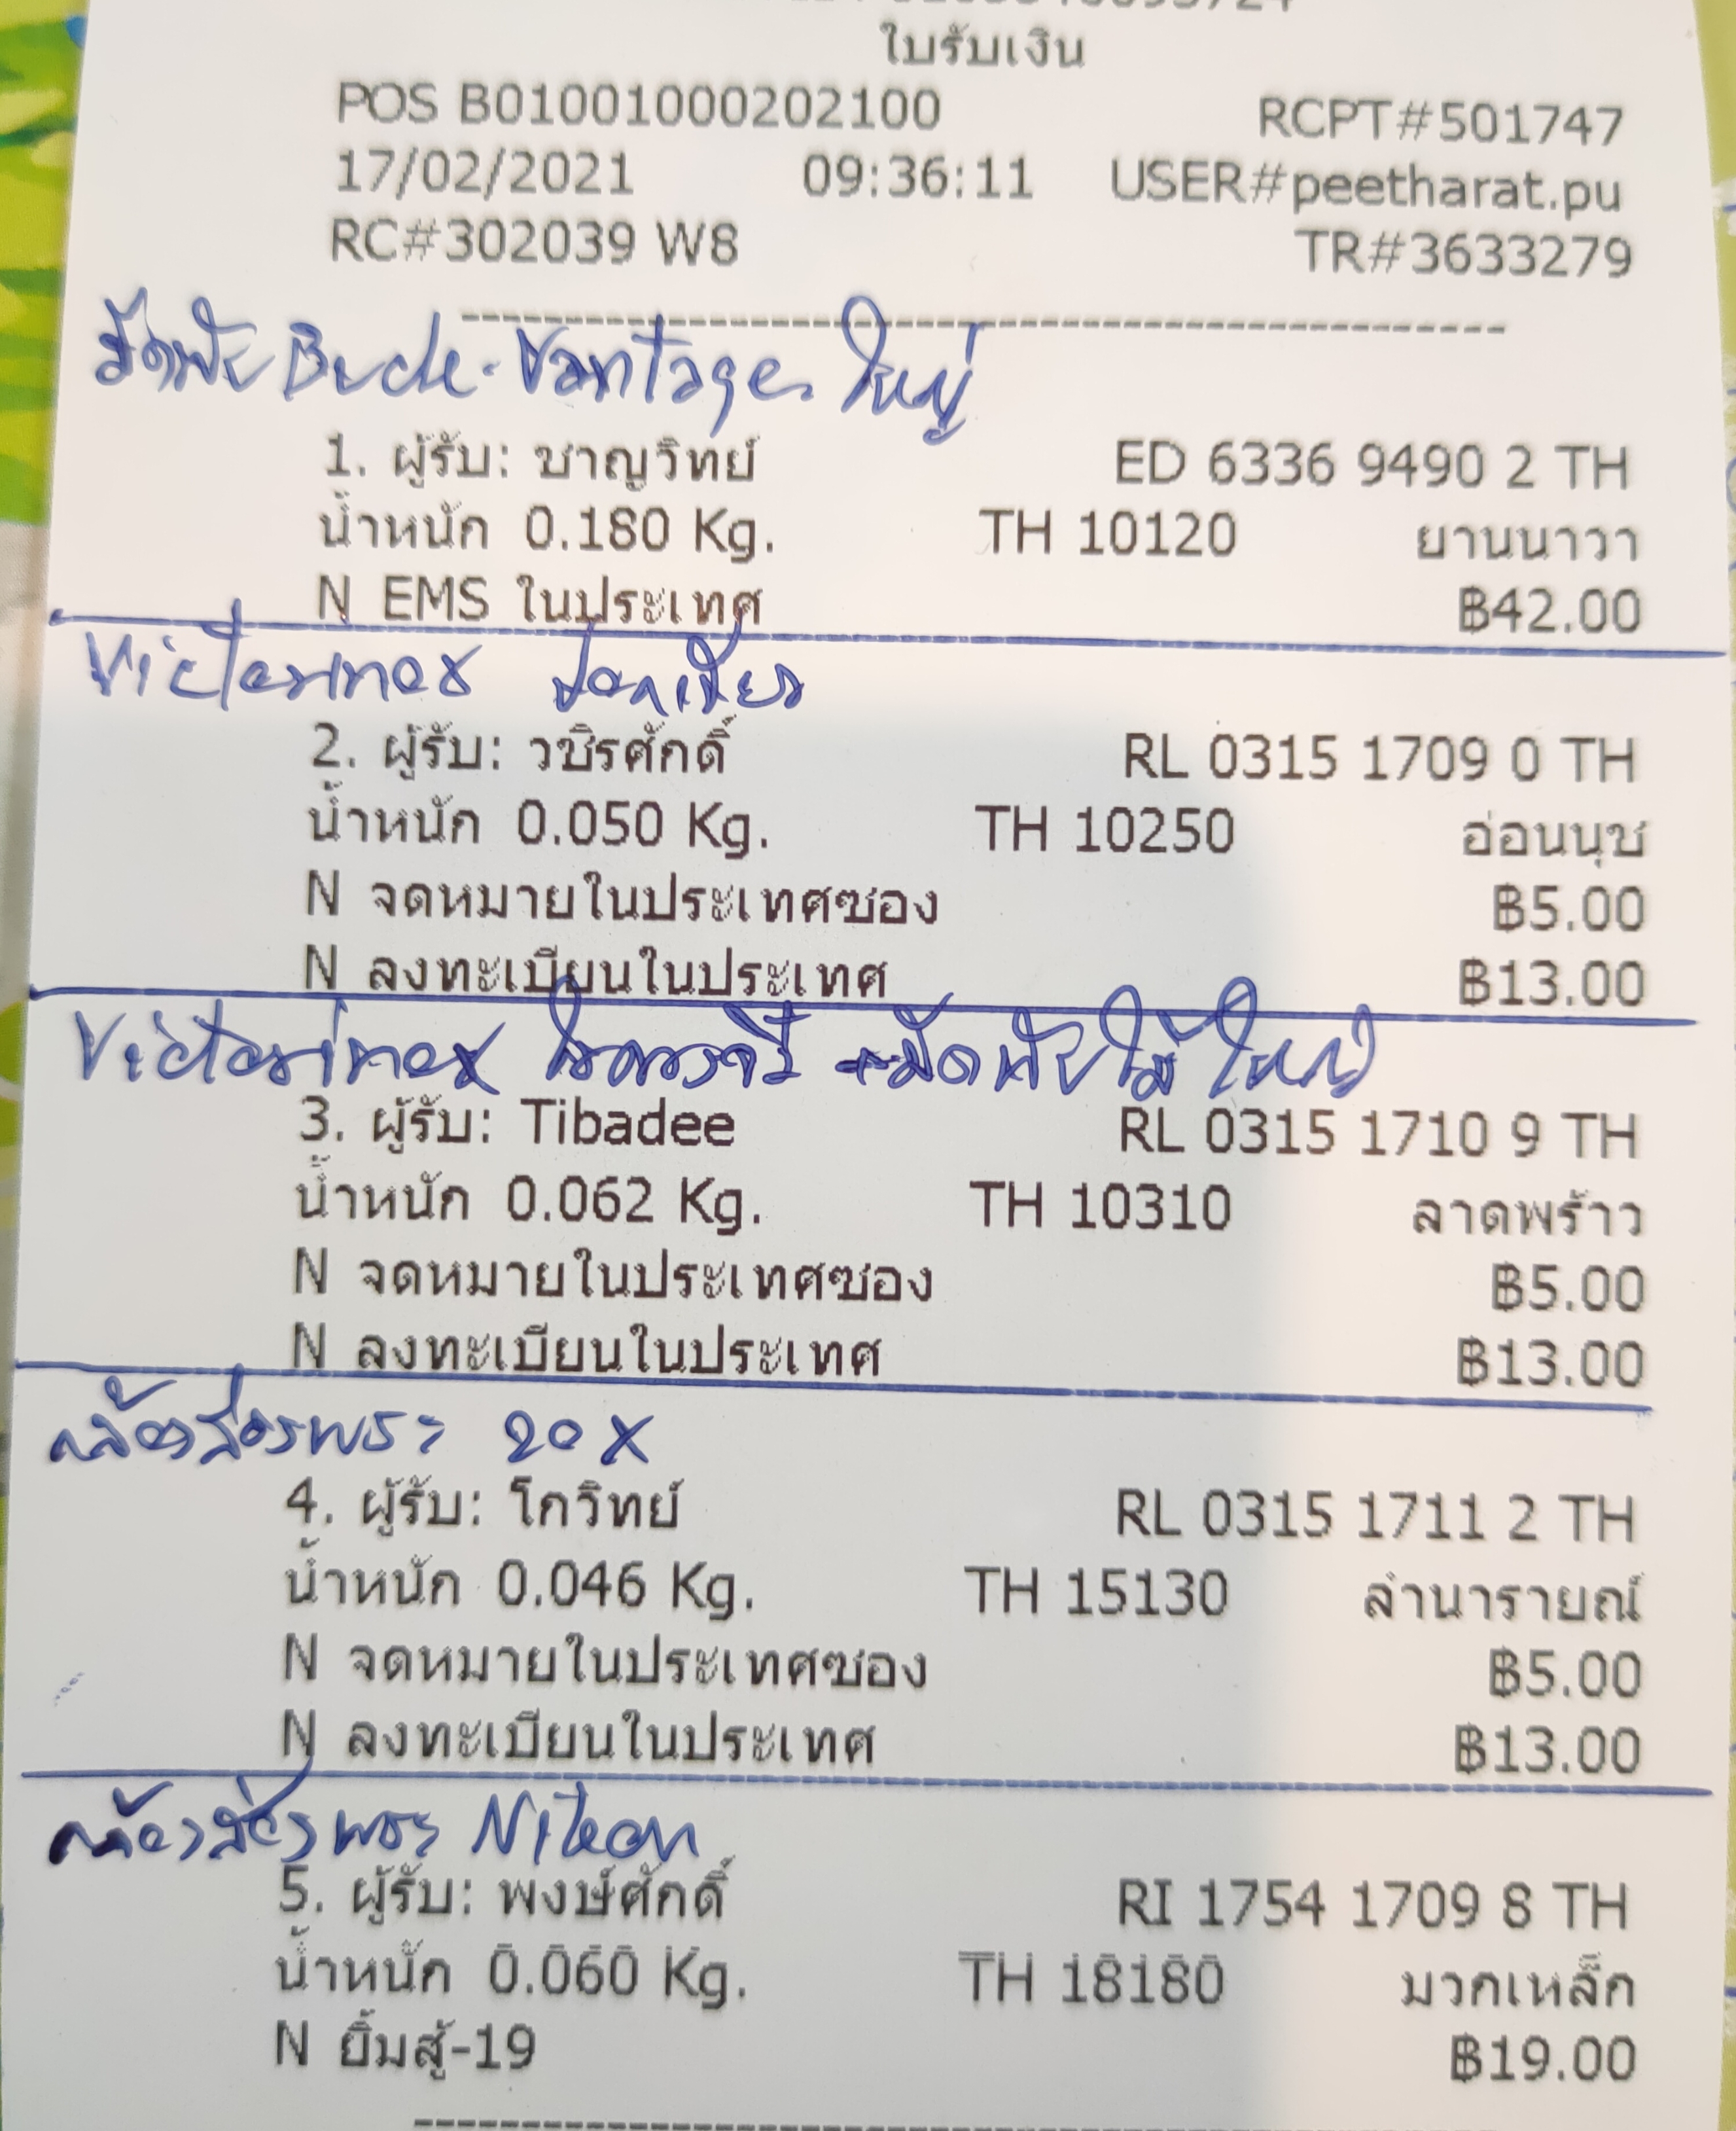 ใบรับเงิน
POS B01001000202100 RCPT#501747
17/02/2021 09:36:11 USER#peetharat.pu
RC#302039 W8 TR#3633279
มีดพับ Buck-Vantage ใหญ่
1. ผู้รับ: ชาญวิทย์ ED 6336 9490 2 TH
น้ำหนัก 0.180 Kg. TH 10120 ยานนาวา
N EMS ในประเทศ ฿42.00
Victorinox
2. ผู้รับ: วชิรศักดิ์ RL 0315 1709 0 TH
น้ำหนัก 0.050 Kg. TH 10250 อ่อนนุช
N จดหมายในประเทศซอง ฿5.00
N ลงทะเบียนในประเทศ ฿13.00
Victorinox +มีดพับไม้ ใหญ่
3. ผู้รับ: Tibadee RL 0315 1710 9 TH
น้ำหนัก 0.062 Kg. TH 10310 ลาดพร้าว
N จดหมายในประเทศซอง ฿5.00
N ลงทะเบียนในประเทศ ฿13.00
กล้องส่องพระ 20X
4. ผู้รับ: โกวิทย์ RL 0315 1711 2 TH
น้ำหนัก 0.046 Kg. TH 15130 ลำนารายณ์
N จดหมายในประเทศซอง ฿5.00
N ลงทะเบียนในประเทศ ฿13.00
กล้องส่องพระ Nikon
5. ผู้รับ: พงษ์ศักดิ์ RI 1754 1709 8 TH
น้ำหนัก 0.060 Kg. TH 18180 มวกเหล็ก
N ยิ้มสู้-19 ฿19.00